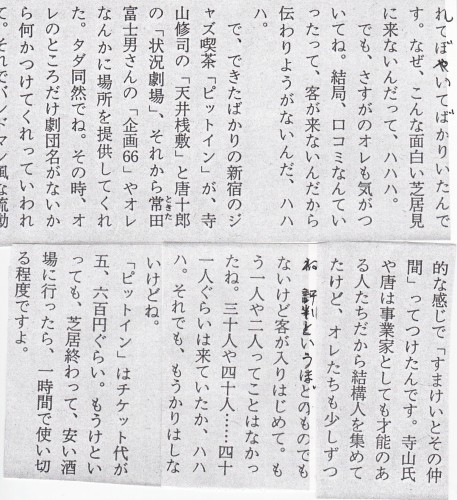 れてぼやいてばかりいたんで
す。なぜ、こんな面白い芝居見
に来ないんだって、ハハハ。
でも、さすがのオレも気がつ
いてね。結局、口コミなんてい
ったって、客が来ないんだから
伝わりようがないんだ、ハハ
ハ。
で、できたばかりの新宿のジ
ャズ喫茶「ピットイン」が、寺
山修司の「天井桟敷」と唐十郎
の「状況劇場」、それから常田
ときた
富士男さんの「企画66」やオレ
なんかに場所を提供してくれ
た。タダ同然でね。その時、オ
レのところだけ劇団名がないか
ら何かつけてくれっていわれ
て。それでバンドマン風な流動
的な感じで「すまけいとその仲
間」ってつけたんです。寺山氏
や唐は事業家としても才能のあ
る人たちだから結構人を集めて
たけど、オレたちも少しずつ
ね 評判というほどのものでも
ないけど客が入りはじめて。も
う一人や二人ってことはなかっ
たね。三十人や四十人……四十
一人ぐらいは来ていたか、ハハ
ハ。それでも、もうかりはしな
いけどね。
「ピットイン」はチケット代が
五、六百円ぐらい。もうけとい
っても、芝居終わって、安い酒
場に行ったら、一時間で使い切
る程度ですよ。